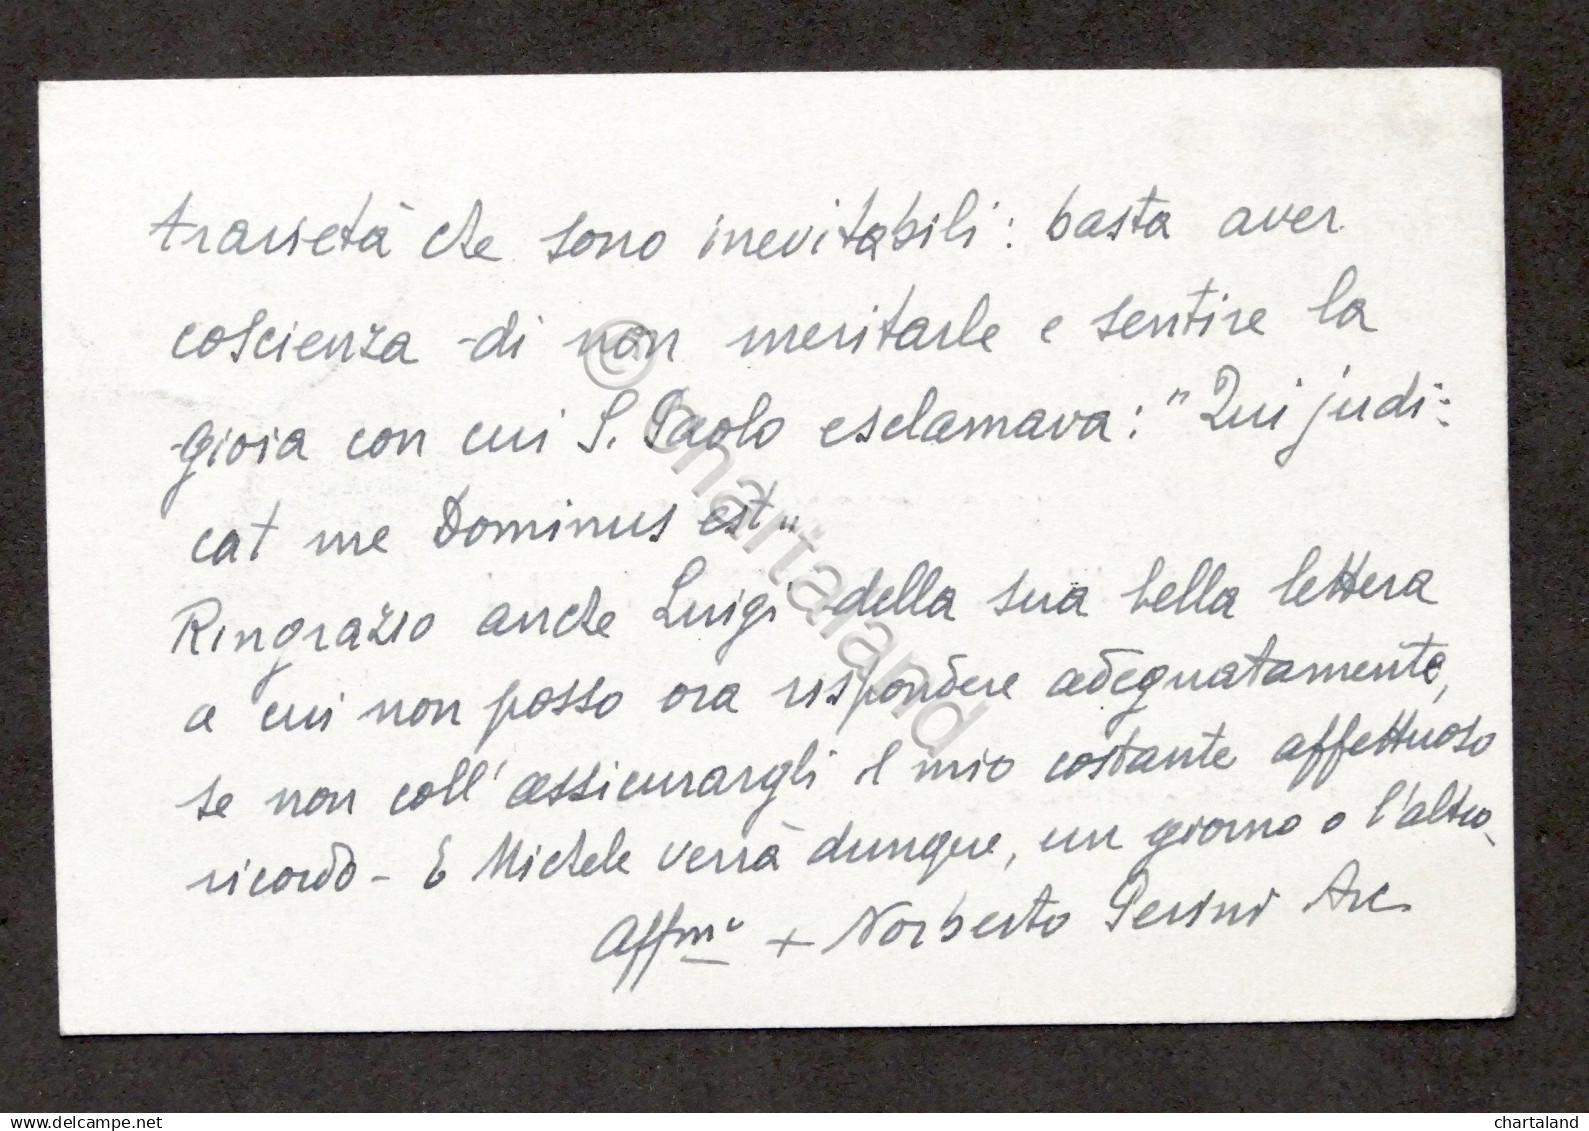 trarietà che sono inevitabili: basta aver
coscienza di non meritarle e sentire la
gioia con cui S. Paolo esclamava: "Qui judi-
cat me Dominus est"
Ringrazio anche Luigi della sua bella lettera
a cui non posso ora rispondere adeguatamente,
se non coll'assicurargli il mio costante affettuoso
ricordo - E Michele verrà dunque, un giorno o l'altro.
Affmo + Norberto Perini Arc.
© chartaland
www.delcampe.net
chartaland